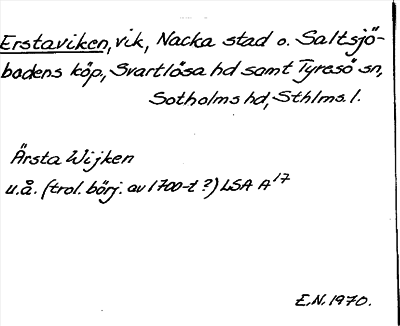 Erstaviken, vik, Nacka stad o. Saltsjö-
badens köp, Svartlösa hd samt Tyresö sn,
Sotholms hd, Sthlms. l.
Ärsta Wijken
u.å. (trol. börj. av 1700-t?) LSA A¹⁷
E.N. 1970.